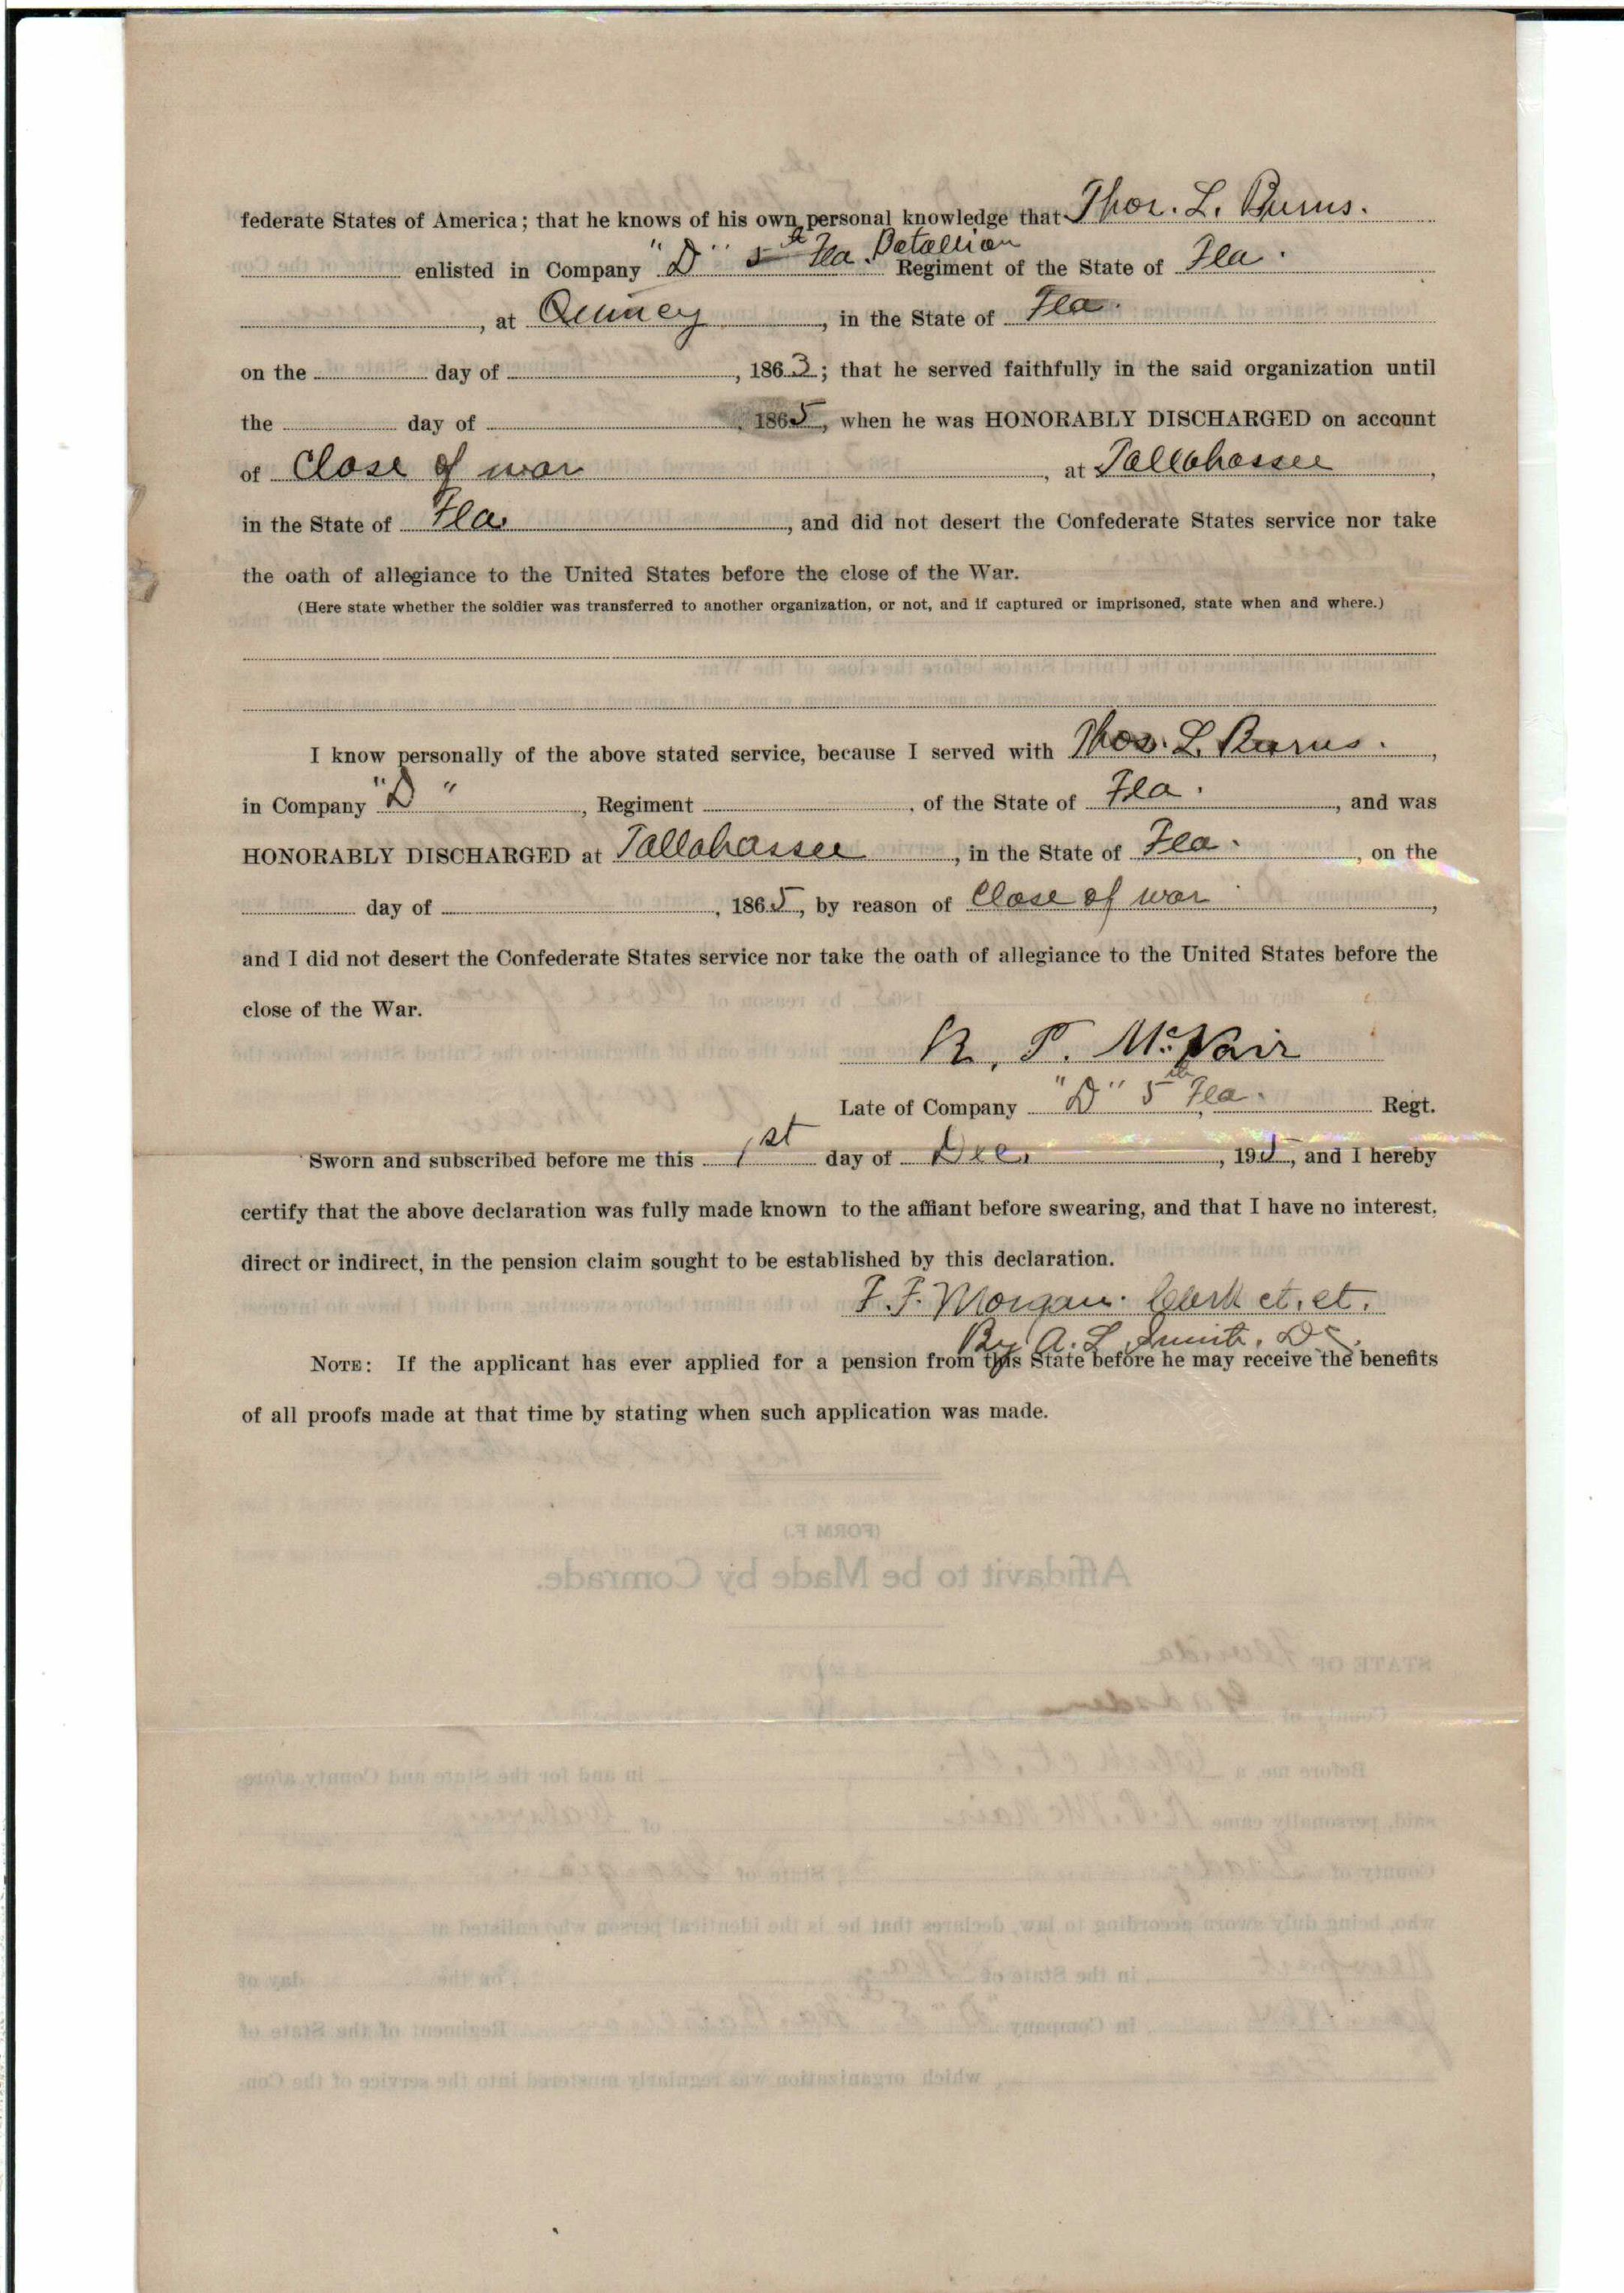 federate States of America; that he knows of his own personal knowledge that Thos. L. Burns.
enlisted in Company "D" 5th Fla. Batallion Regiment of the State of Fla.
, at Quincy, in the State of Fla.
on the day of , 1863; that he served faithfully in the said organization until
the day of 1865, when he was HONORABLY DISCHARGED on account
of Close of war, at Tallahassee,
in the State of Fla., and did not desert the Confederate States service nor take
the oath of allegiance to the United States before the close of the War.
(Here state whether the soldier was transferred to another organization, or not, and if captured or imprisoned, state when and where.)
I know personally of the above stated service, because I served with Thos. L. Burns.,
in Company "D", Regiment , of the State of Fla., and was
HONORABLY DISCHARGED at Tallahassee, in the State of Fla., on the
day of , 1865, by reason of Close of war,
and I did not desert the Confederate States service nor take the oath of allegiance to the United States before the
close of the War.
R. P. McNair
Late of Company "D" 5th Fla. Regt.
Sworn and subscribed before me this 1st day of Dec., 19 , and I hereby
certify that the above declaration was fully made known to the affiant before swearing, and that I have no interest,
direct or indirect, in the pension claim sought to be established by this declaration.
F. F. Morgan. Clerk ct. ct.
By A. L. Smith, DC.
NOTE: If the applicant has ever applied for a pension from this State before he may receive the benefits
of all proofs made at that time by stating when such application was made.
(FORM F.)
Affidavit to be Made by Comrade.